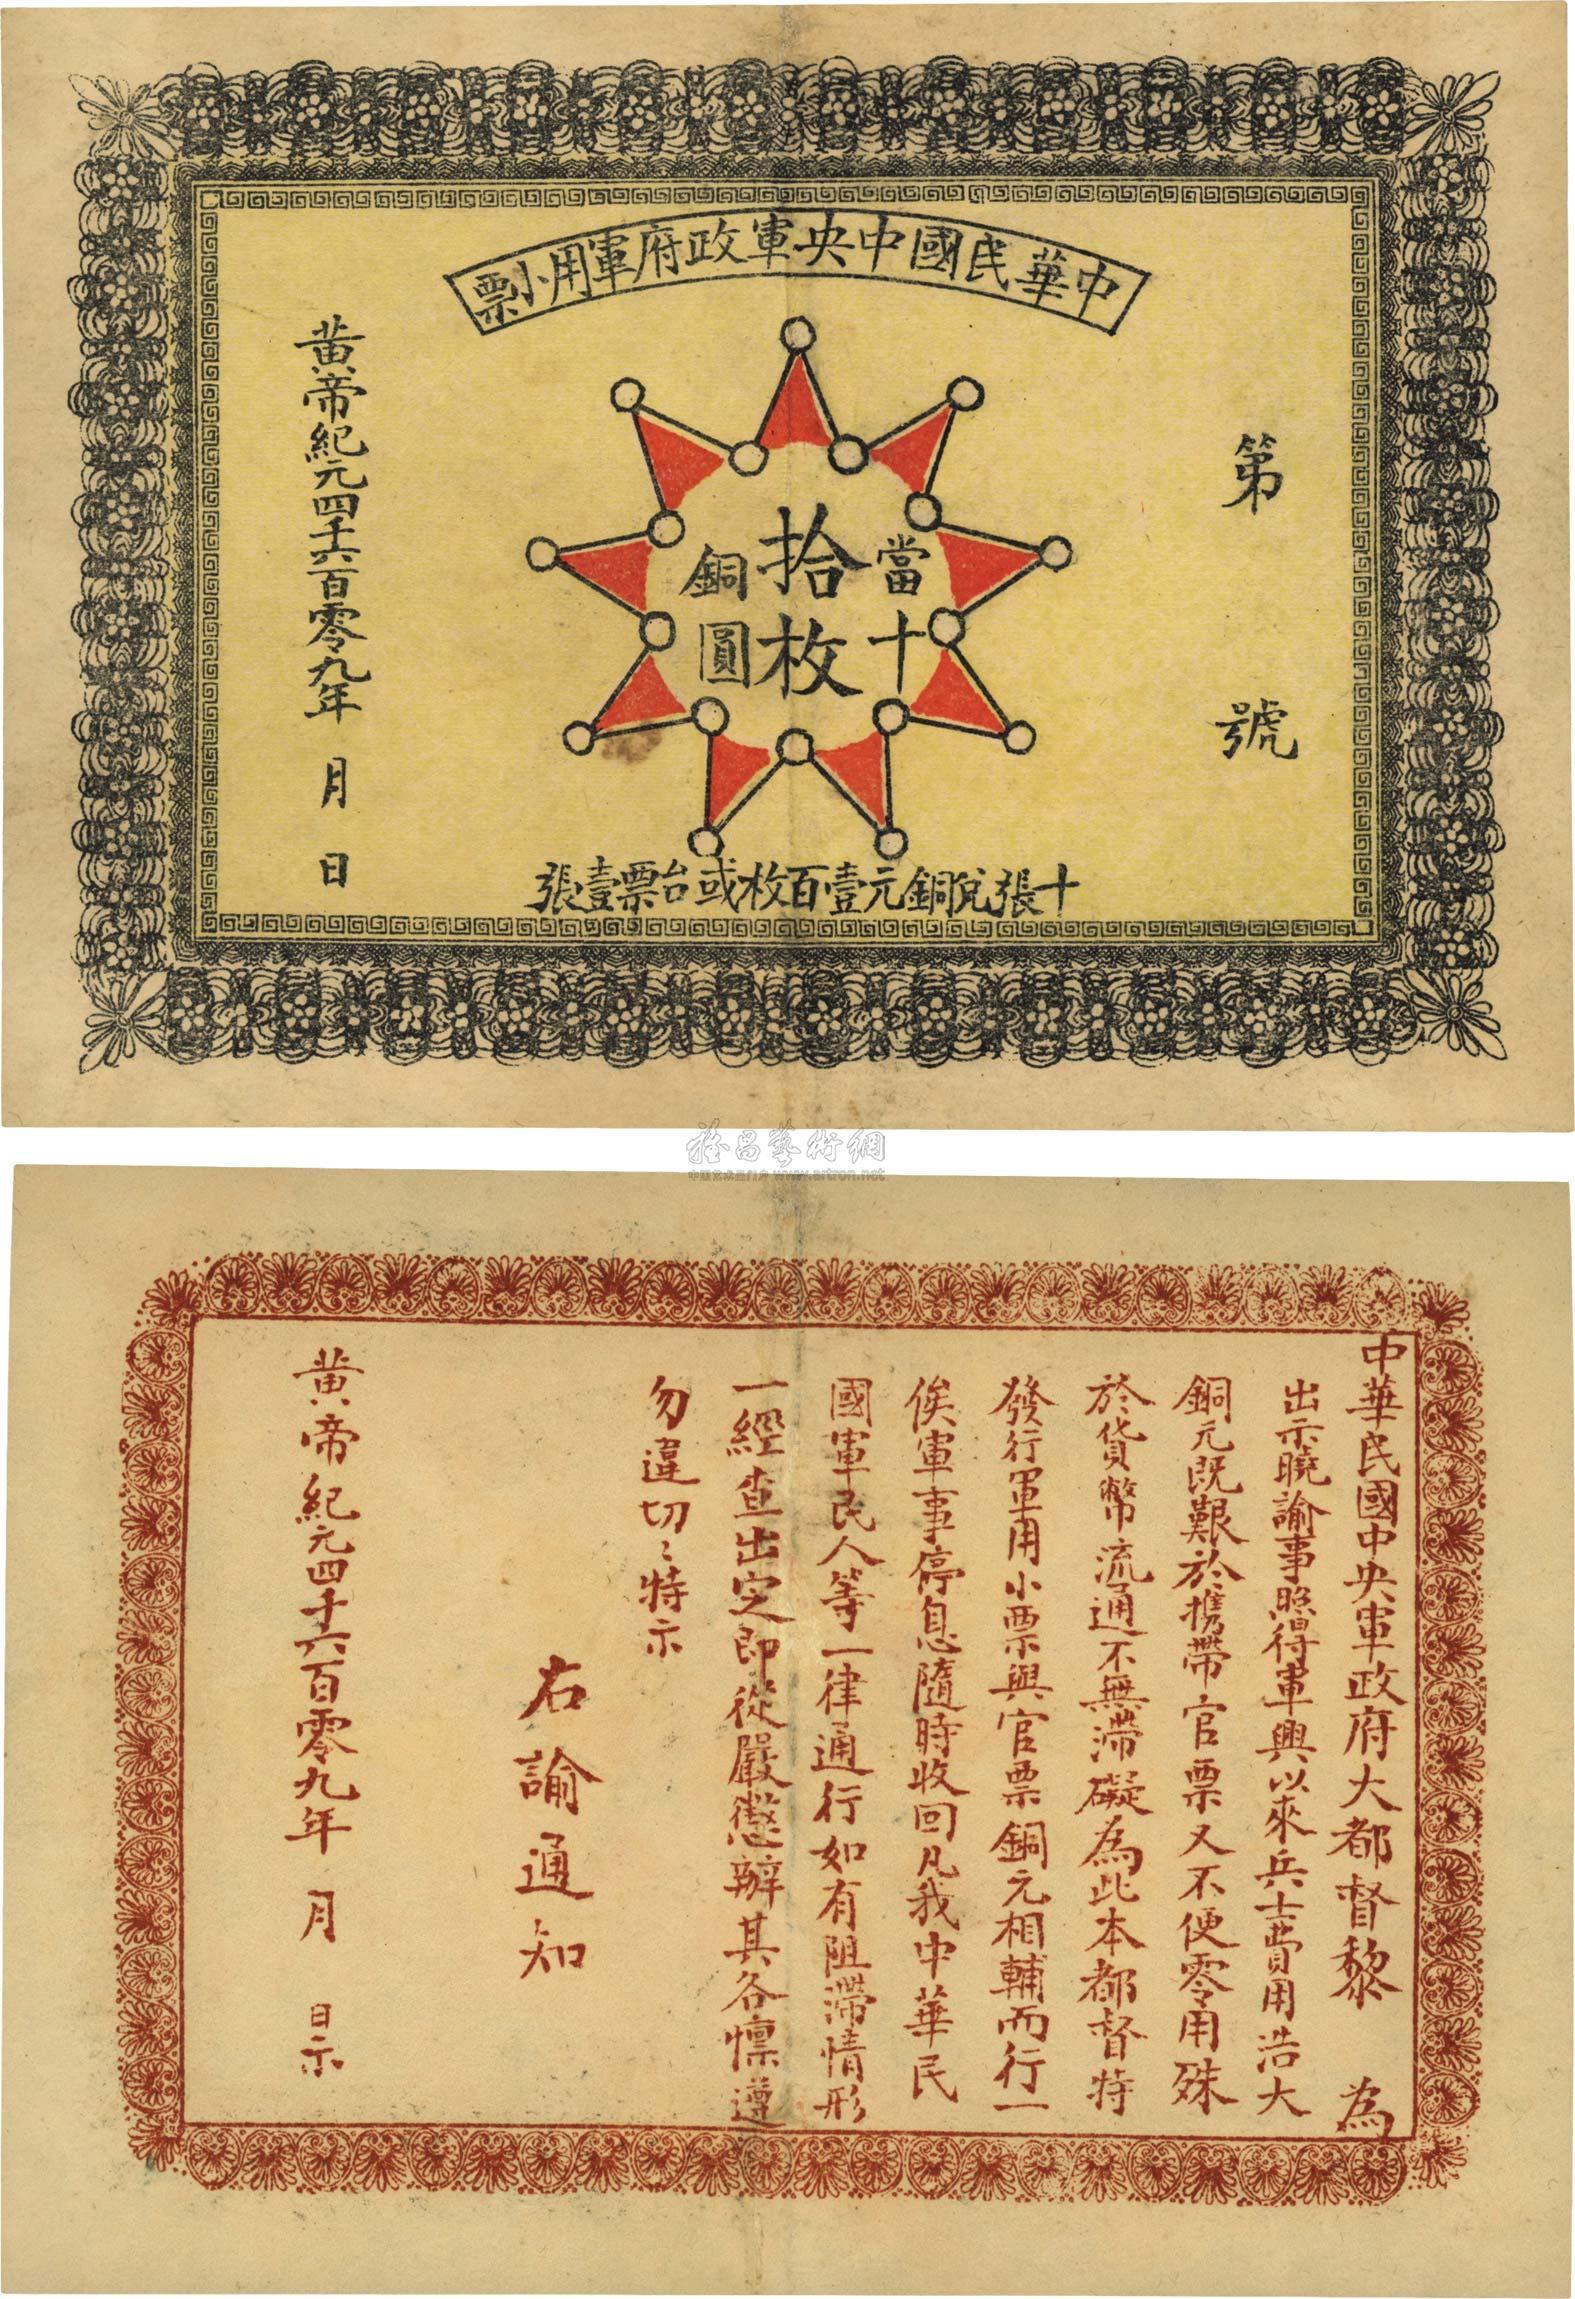 中華民國中央軍政府軍用小票
第 號
當十
拾枚
銅圓
黃帝紀元四千六百零九年 月 日
十張兌銅元壹百枚或台票壹張
雅昌藝術網
www.artron.net
中華民國中央軍政府大都督黎 為
出示曉諭事照得軍興以來兵士費用浩大
銅元既艱於携帶官票又不便零用殊
於貨幣流通不無滯礙為此本都督特
發行軍用小票與官票銅元相輔而行一
俟軍事停息隨時收回凡我中華民
國軍民人等一律通行如有阻滯情形
一經查出定即從嚴懲辦其各懍遵
勿違切〻特示
右諭通知
黃帝紀元四千六百零九年 月 日示